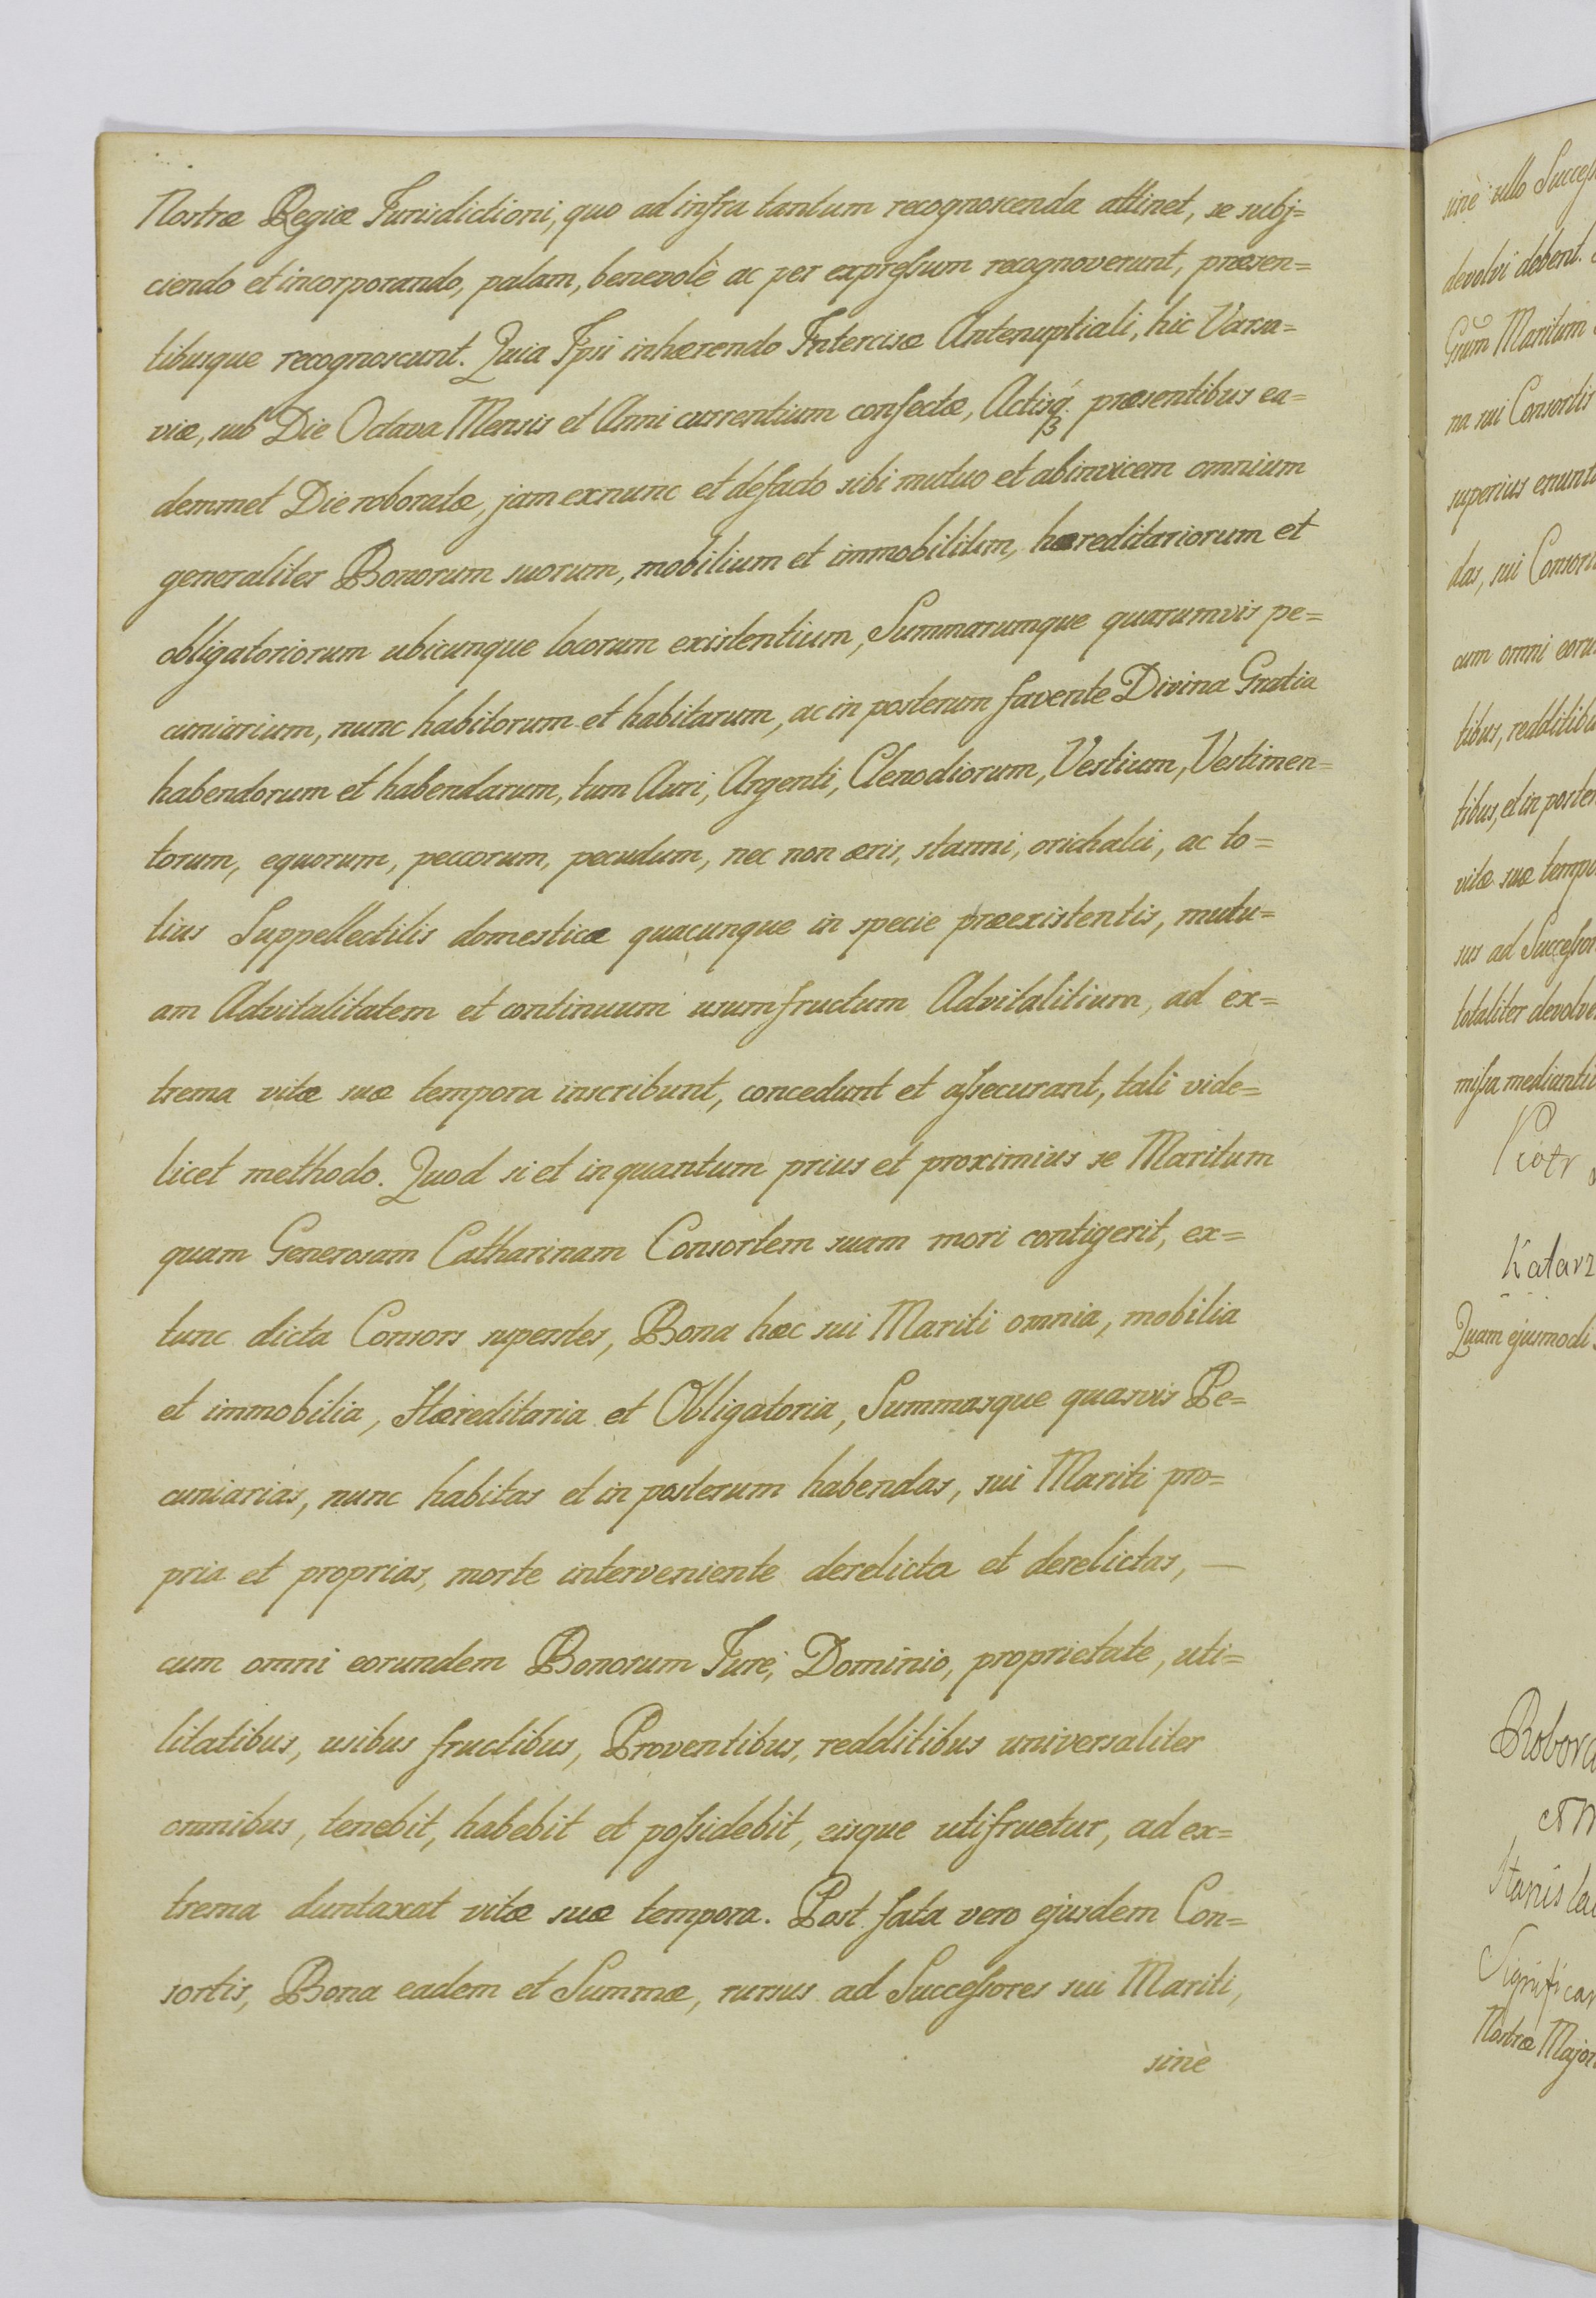 Nostræ Regiæ Jurisdictioni, quo ad infra tantum recognoscenda attinet, se subj=
ciendo et incorporando, palam, benevolè ac per expreſsum recognoverunt, præsen=
tibusque recognoscunt. Quia Ipsi inhærendo Intercisæ Antenuptiali, hic Varsa=
viæ, sub Die Octava Mensis et Anni currentium confectæ, Actisq́ præsentibus ea=
demmet Die roboratæ, jam exnunc et defacto sibi mutuo et abinvicem omnium
generaliter Bonorum suorum, mobilium et immobilium, hæreditariorum et
obligatoriorum ubicunque locorum existentium, Summarumque quarumvis pe=
cuniarium, nunc habitorum et habitarum, ac in posterum favente Divina Gratia
habendorum et habendarum, tum Auri, Argenti, Clenodiorum, Vestium, Vestimen=
torum, equorum, peccorum, pecudum, nec non æris, stanni, orichalci, ac to=
tius Suppellectilis domesticæ quacunque in specie præexistentis, mutu=
am Advitalitatem et continuum usumfructum Advitalitium, ad ex=
trema vitæ suæ tempora inscribunt, concedunt et aſsecurant, tali vide=
licet methodo. Quod si et inquantum prius et proximius se Maritum
quam Generosam Catharinam Consortem suam mori contigerit, ex=
tunc dicta Consors superstes, Bona hæc sui Mariti omnia, mobilia
et immobilia, Hæreditaria et Obligatoria, Summasque quasvis Pe=
cuniarias, nunc habitas et in posterum habendas, sui Mariti pro=
pria et proprias, morte interveniente derelicta et derelictas, —
cum omni eorundem Bonorum Jure, Dominio, proprietate, uti=
litatibus, usibus fructibus, Proventibus, redditibus universaliter
omnibus, tenebit, habebit et poſsidebit, eisque utifruetur, ad ex=
trema duntaxat vitæ suæ tempora. Post fata vero ejusdem Con=
sortis, Bona eadem et Summæ, rursus ad Succeſsores sui Mariti,
sinè
sinè ullo
devolvi debent.
Gnum Maritum
na sui Consortis
superius
das, sui
cum omni
tibus,
tibus, et in
vitæ suæ
sus ad
totaliter
miſsa
Piotr
Quam ejusmodi
Nostræ